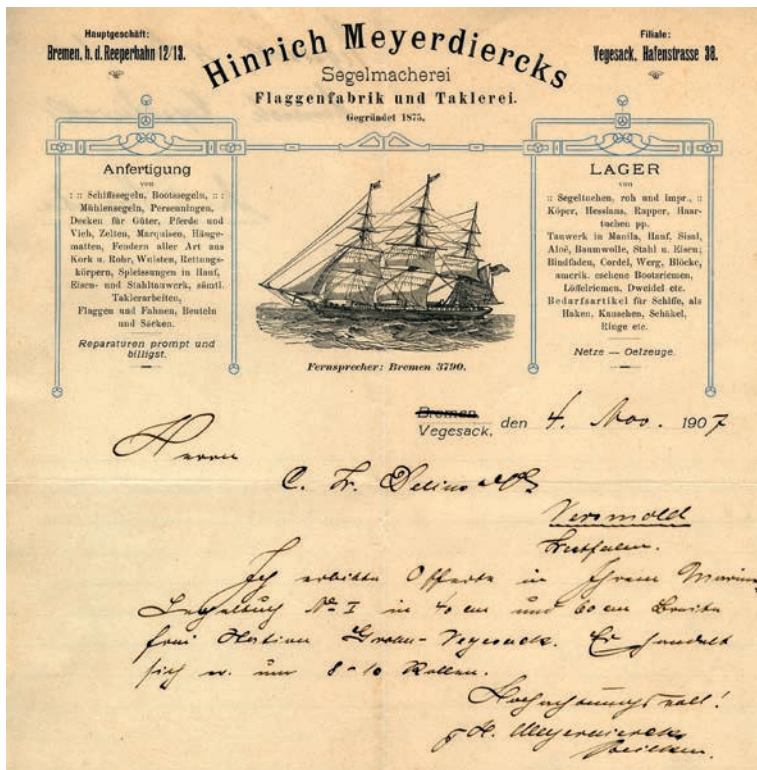 Hauptgeschäft:
Bremen, h. d. Reeperbahn 12/13.
Hinrich Meyerdiercks
Segelmacherei
Flaggenfabrik und Taklerei.
Gegründet 1875.
Filiale:
Vegesack, Hafenstrasse 38.
Anfertigung
von
: :: Schiffssegeln, Bootssegeln, :: :
Mühlensegeln, Persenningen,
Decken für Güter, Pferde und
Vieh, Zelten, Marquisen, Hänge-
matten, Fendern aller Art aus
Kork u. Rohr, Wulsten, Rettungs-
körpern, Spleissungen in Hanf,
Eisen- und Stahltauwerk, sämtl.
Taklerarbeiten,
Flaggen und Fahnen, Beuteln
und Säcken.
Reparaturen prompt und
billigst.
Fernsprecher: Bremen 3790.
LAGER
von
:: Segeltuchen, roh und impr., ::
Köper, Hessians, Rapper, Haar-
tuchen pp.
Tauwerk in Manila, Hanf, Sisal,
Aloë, Baumwolle, Stahl u. Eisen;
Bindfaden, Cordel, Werg, Blöcke,
amerik. eschene Bootsriemen,
Löffelriemen, Dweidel etc.
Bedarfsartikel für Schiffe, als
Haken, Kauschen, Schäkel,
Ringe etc.
Netze — Oelzeuge.
Bremen
Vegesack, den 4. Nov. 1907
Herrn
C. Fr. Delius & Co
Versmold
Westfalen.
Ich erbitte Offerte in Ihrem Marine
Segeltuch No I in 40 cm und 60 cm Breite
frei Station Grohn-Vegesack. Es handelt
sich um 8-10 Rollen.
Hochachtungsvoll!
H. Meyerdiercks